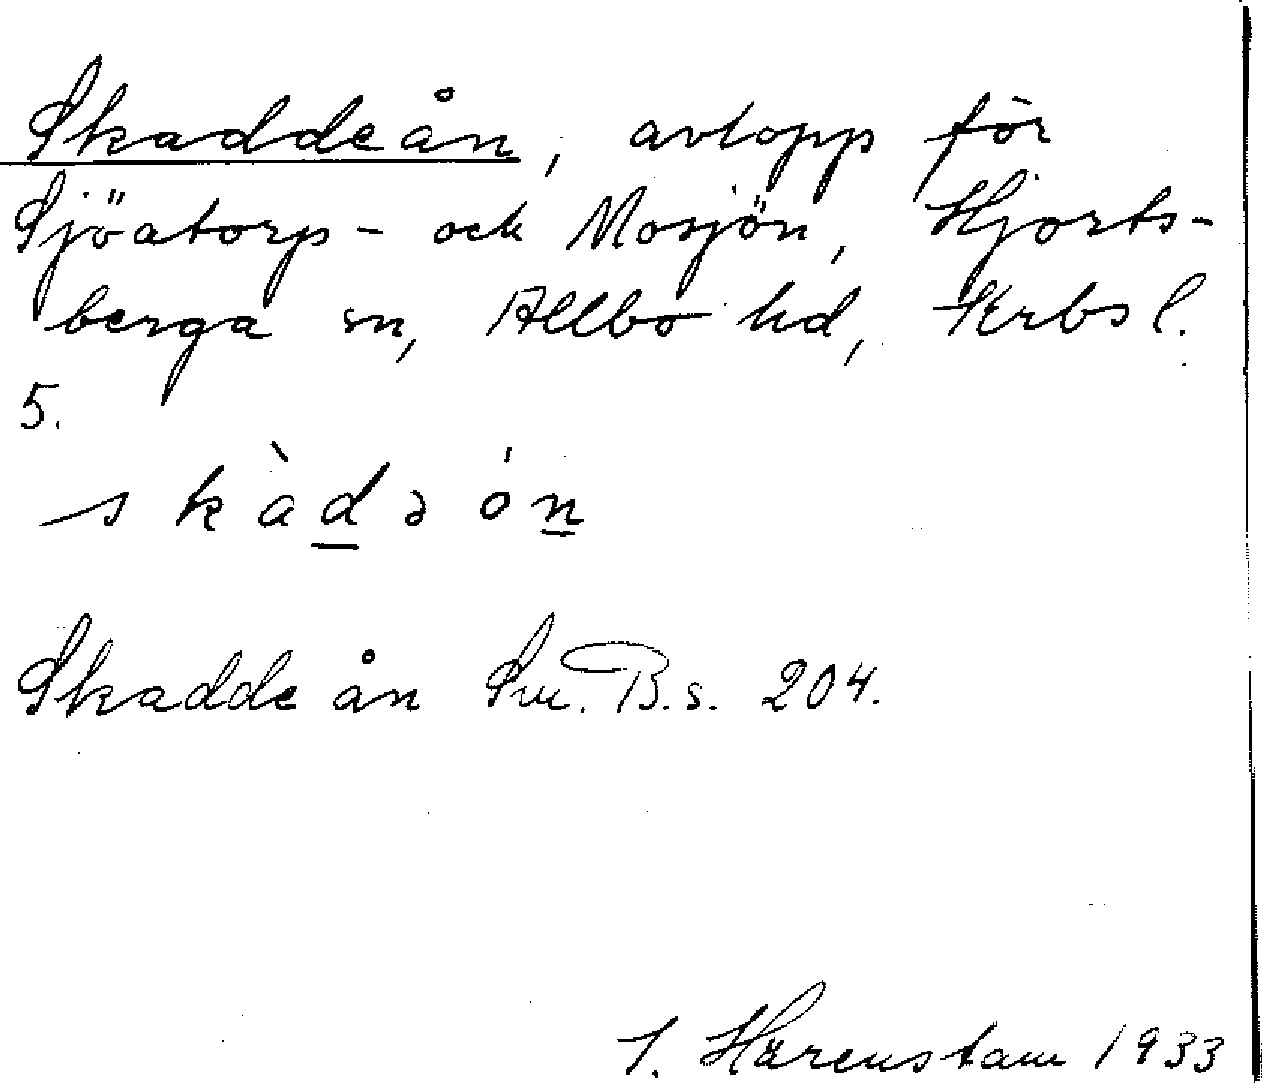 Skaddeån, avlopp för
Sjöatorps- och Mosjön, Hjorts-
berga sn, Allbo hd, Krbs l.
5.
skàd̲ə ón̲
Skadde ån Sve. B.s. 204.
Härenstam 1933